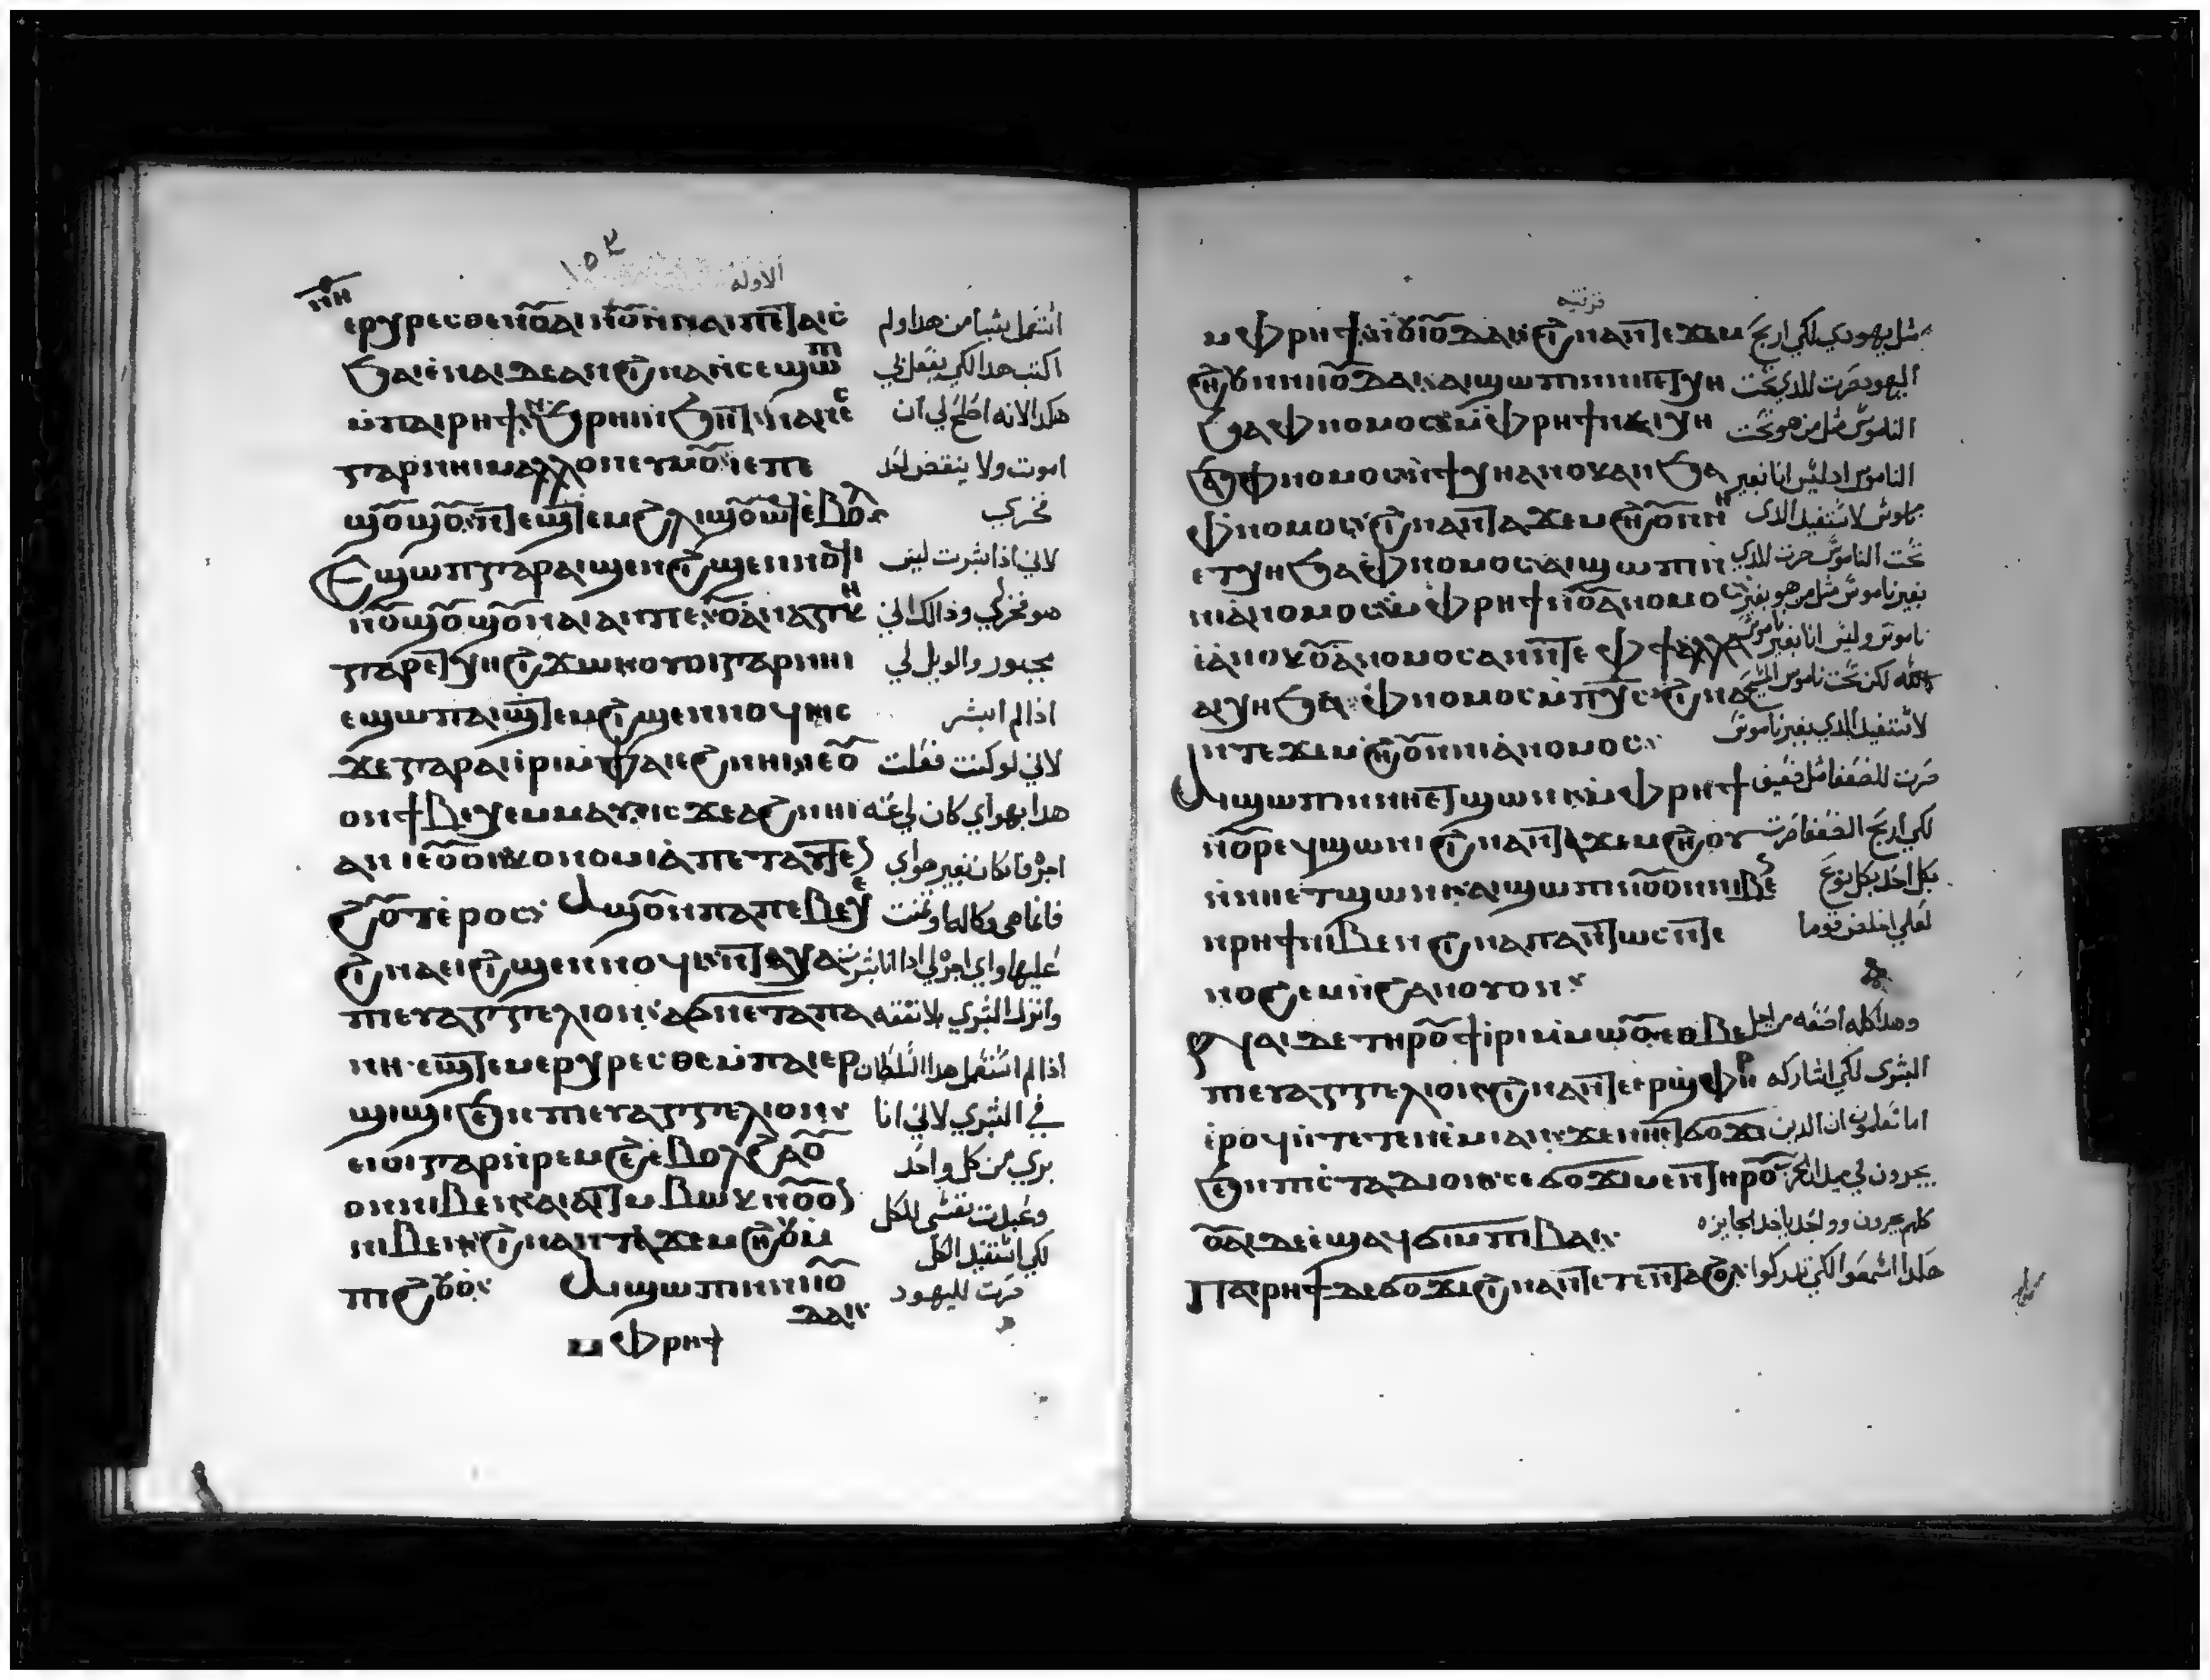 ⲡ̅ⲏ
١٥٣
الاوله
ⲉⲣⲭⲣⲉⲥⲑⲉ ⲛⲟⲩⲁⲓ ⲛⲧⲟⲩ ⲛⲛⲁⲓ ⲙⲡⲉⲧⲁⲓⲥ
ϧⲁⲓ ⲉⲛⲁⲓ ⲇⲉ ⲁⲛ ϩⲓⲛⲁ ⲛⲥⲉϣⲱⲡⲓ
ⲙⲡⲁⲓⲣⲏϯ ⲛϧⲣⲏⲓ ⲛϧⲏⲧ ⲛⲁⲛⲉⲥ
ⲅⲁⲣ ⲛⲏⲓ ⲙⲁⲗⲗⲟⲛ ⲉⲙⲟⲩ ⲓⲉ ⲡⲉ
ϣⲟⲩϣⲟⲩ ⲛⲧⲉϣⲧⲉⲙϩⲗⲓ ϣⲟⲩⲱⲧ ⲉⲃⲟⲗ
ⲉϣⲱⲡ ⲅⲁⲣ ⲁⲓϣⲉⲛϩⲓϣⲉⲛⲛⲟⲩϥⲓ
ⲛⲟⲩϣⲟⲩϣⲟⲩ ⲛⲁⲓ ⲁⲛ ⲡⲉ ⲟⲩⲁⲛⲁⲅⲕⲏ
ⲅⲁⲣ ⲉⲧⲭⲏ ϩⲓϫⲱⲓ ⲟⲩⲟⲓ ⲅⲁⲣ ⲛⲏⲓ
ⲉϣⲱⲡ ⲁⲓϣⲧⲉⲙϩⲓϣⲉⲛⲛⲟⲩϥⲓ ⲓⲥ
ϫⲉ ⲅⲁⲣ ⲁⲓⲓⲣⲓ ⲙⲫⲁⲓ ϩⲛⲏⲓ ⲙⲉⲟⲩ
ⲟⲛϯ ⲃⲉⲭⲉ ⲙⲙⲁⲩ ⲓⲥϫⲉ ⲁϩⲛⲏⲓ
ⲁⲛ ⲓⲉ ⲟⲩⲟⲓⲕⲟⲛⲟⲙⲓⲁ ⲡⲉⲧⲁⲩⲧⲉⲛ
ϩⲟⲩⲧ ⲉⲣⲟⲥ ⲁϣ ⲟⲩⲛ ⲡⲁⲡⲉ ⲃⲉⲭⲉ
ϩⲓⲛⲁ ⲉⲓϩⲓϣⲉⲛⲛⲟⲩϥⲓ ⲛⲧⲁⲭⲁ
ⲡⲓⲉⲩⲁⲅⲅⲉⲗⲓⲟⲛ ⲁϭⲛⲉ ⲧⲁⲡⲁ
ⲛⲏ ⲉϣⲧⲉⲙⲉⲣⲭⲣⲉⲥⲑⲉ ⲙⲡⲁⲓⲉⲣ
ϣⲓϣⲓ ϧⲉⲛ ⲡⲓⲉⲩⲁⲅⲅⲉⲗⲓⲟⲛ
ⲉⲓⲟⲓ ⲅⲁⲣ ⲛⲣⲉⲙϩⲉ ⲉⲃⲟⲗϩⲁ ⲟⲩ
ⲟⲛ ⲛⲓⲃⲉⲛ ⲁⲓⲁⲓⲧ ⲙⲃⲱⲕ ⲛⲟⲩⲟⲛ
ⲛⲓⲃⲉⲛ ϩⲓⲛⲁ ⲛⲧⲁϫⲉⲙϩⲏⲟⲩ ⲙ
ⲡⲓϩⲟⲩⲟ ⲁⲓϣⲱⲡⲓ ⲛⲛⲓⲓⲟⲩ
ⲇⲁⲓ
ⲙⲫⲣⲏϯ
اشتعمل بشيا من هذا ولم
اكتب هذا لكي يفعل بي
هكذا لانه اصلح لي ان
اموت ولا ينقض احد
فخري
لاني اذا بشرت ليس
هو فخري وذالك اني
مجبور والويل لي
اذا لم ابشر
لاني لو كنت فعلت
هذا بهواي كان لي عنه
اجر فان كان بغير هواي
فانما هي وكاله اؤتمنت
عليها واي اجر لي اذا انا بشرت
وانزل البشري بلا نفقه
اذا لم اشتعمل هذا السلطان
في البشري لاني انا
بري من كل واحد
وعبدت نفسي للكل
لكي اشتفيد الكل
صرت لليهود
قرنتيه
ⲙⲫⲣⲏϯ ⲛⲟⲩⲓⲟⲩⲇⲁⲓ ϩⲓⲛⲁ ⲛⲧⲉϫⲉⲙ
ϩⲏⲟⲩ ⲛⲛⲓⲓⲟⲩⲇⲁⲓ ⲁⲓϣⲱⲡⲓ ⲛⲛⲏⲉⲧⲭⲏ
ϧⲁ ⲫⲛⲟⲙⲟⲥ ⲙⲫⲣⲏϯ ⲉⲓⲭⲏ
ϧⲁ ⲫⲛⲟⲙⲟⲥ ⲛϯⲭⲏ ⲁⲛⲟⲕ ⲁⲛ ϧⲁ
ⲫⲛⲟⲙⲟⲥ ϩⲓⲛⲁ ⲛⲧⲁϫⲉⲙϩⲏⲟⲩ ⲛⲛⲏ
ⲉⲧⲭⲏ ϧⲁ ⲫⲛⲟⲙⲟⲥ ⲁⲓϣⲱⲡⲓ ⲛ
ⲛⲓⲁⲛⲟⲙⲟⲥ ⲙⲫⲣⲏϯ ⲛⲟⲩⲁⲛⲟⲙⲟⲥ
ⲉⲁⲛⲟⲕ ⲟⲩⲁⲛⲟⲙⲟⲥ ⲁⲛ ⲛⲧⲉ ⲫϯ ⲁⲗⲗⲁ
ⲁⲓⲭⲏ ϧⲁ ⲫⲛⲟⲙⲟⲥ ⲙⲡⲭⲥ ϩⲓⲛⲁ
ⲛⲧⲉϫⲉⲙϩⲏⲟⲩ ⲛⲛⲓⲁⲛⲟⲙⲟⲥ
ⲁⲓϣⲱⲡⲓ ⲛⲛⲏⲉⲧϣⲱⲛⲓ ⲙⲫⲣⲏϯ
ⲛⲟⲩⲣⲉϥϣⲱⲛⲓ ϩⲓⲛⲁ ⲛⲧⲁϫⲉⲙϩⲏⲟⲩ
ⲛⲛⲏⲉⲧϣⲱⲛⲓ ⲁⲓϣⲱⲡⲓ ⲛⲟⲩⲟⲛ ⲛⲓⲃⲉⲛ
ⲛⲣⲏϯ ⲛⲓⲃⲉⲛ ϩⲓⲛⲁ ⲡⲁⲛⲧⲱⲥ ⲛⲧⲉ
ⲛⲟϩⲉⲙ ⲛϩⲁⲛⲟⲩⲟⲛ
ⲫⲁⲓ ⲇⲉ ⲧⲏⲣⲟⲩ ϯⲓⲣⲓ ⲙⲙⲱⲟⲩ ⲉⲑⲃⲉ
ⲡⲓⲉⲩⲁⲅⲅⲉⲗⲓⲟⲛ ϩⲓⲛⲁ ⲛⲧⲉⲉⲣϣⲫⲏⲣ
ⲉⲣⲟϥ ⲛⲧⲉⲧⲉⲛⲉⲙⲓ ⲁⲛ ϫⲉ ⲛⲏⲉⲧϭⲟϫⲓ
ϧⲉⲛ ⲡⲓⲥⲧⲁⲇⲓⲟⲛ ⲥⲉϭⲟϫⲓ ⲙⲉⲛ ⲧⲏⲣⲟⲩ
ⲟⲩⲁⲓ ⲇⲉ ⲉϣⲁϥϭⲓ ⲙⲡⲓⲃⲁⲓ
ⲡⲁⲓⲣⲏϯ ⲇⲉ ϭⲟϫⲓ ϩⲓⲛⲁ ⲛⲧⲉⲧⲉⲛⲧⲁϩⲟ
مثل يهودي لكي اربح
اليهود صرت للذي تحت
الناموس مثل من هو تحت
الناموس اذ ليس انا بغير
ناموس لاشتفيد الذي
تحت الناموس صرت للذي
بغير ناموس مثل من هو بغير
ناموس وليس انا بغير ناموس
الله لكن تحت ناموس المسيح
لاشتفيد الذي بغير ناموس
صرت للضعفا مثل ضعيف
لكي اربح الضعفا صرت
بكل احد بكل نوع
لعلي اخلص قوما
وهذا كله اصنعه من اجل
البشري لكي اشاركه
اما تعلمون ان الذين
يجرون في ميدان
كلهم يجرون وواحد ياخذ الجايزه
هكذا اشعوا لكي تدركوا